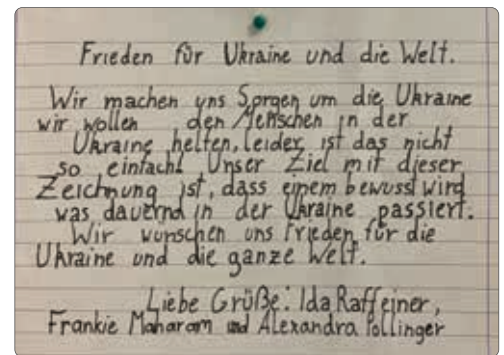 Frieden für Ukraine und die Welt.
Wir machen uns Sorgen um die Ukraine
wir wollen den Menschen in der
Ukraine helfen, leider ist das nicht
so einfach! Unser Ziel mit dieser
Zeichnung ist, dass einem bewusst wird
was dauernd in der Ukraine passiert.
Wir wunschen uns Frieden für die
Ukraine und die ganze Welt.
Liebe Grüße: Ida Raffeiner,
Frankie Maharam und Alexandra Pollinger